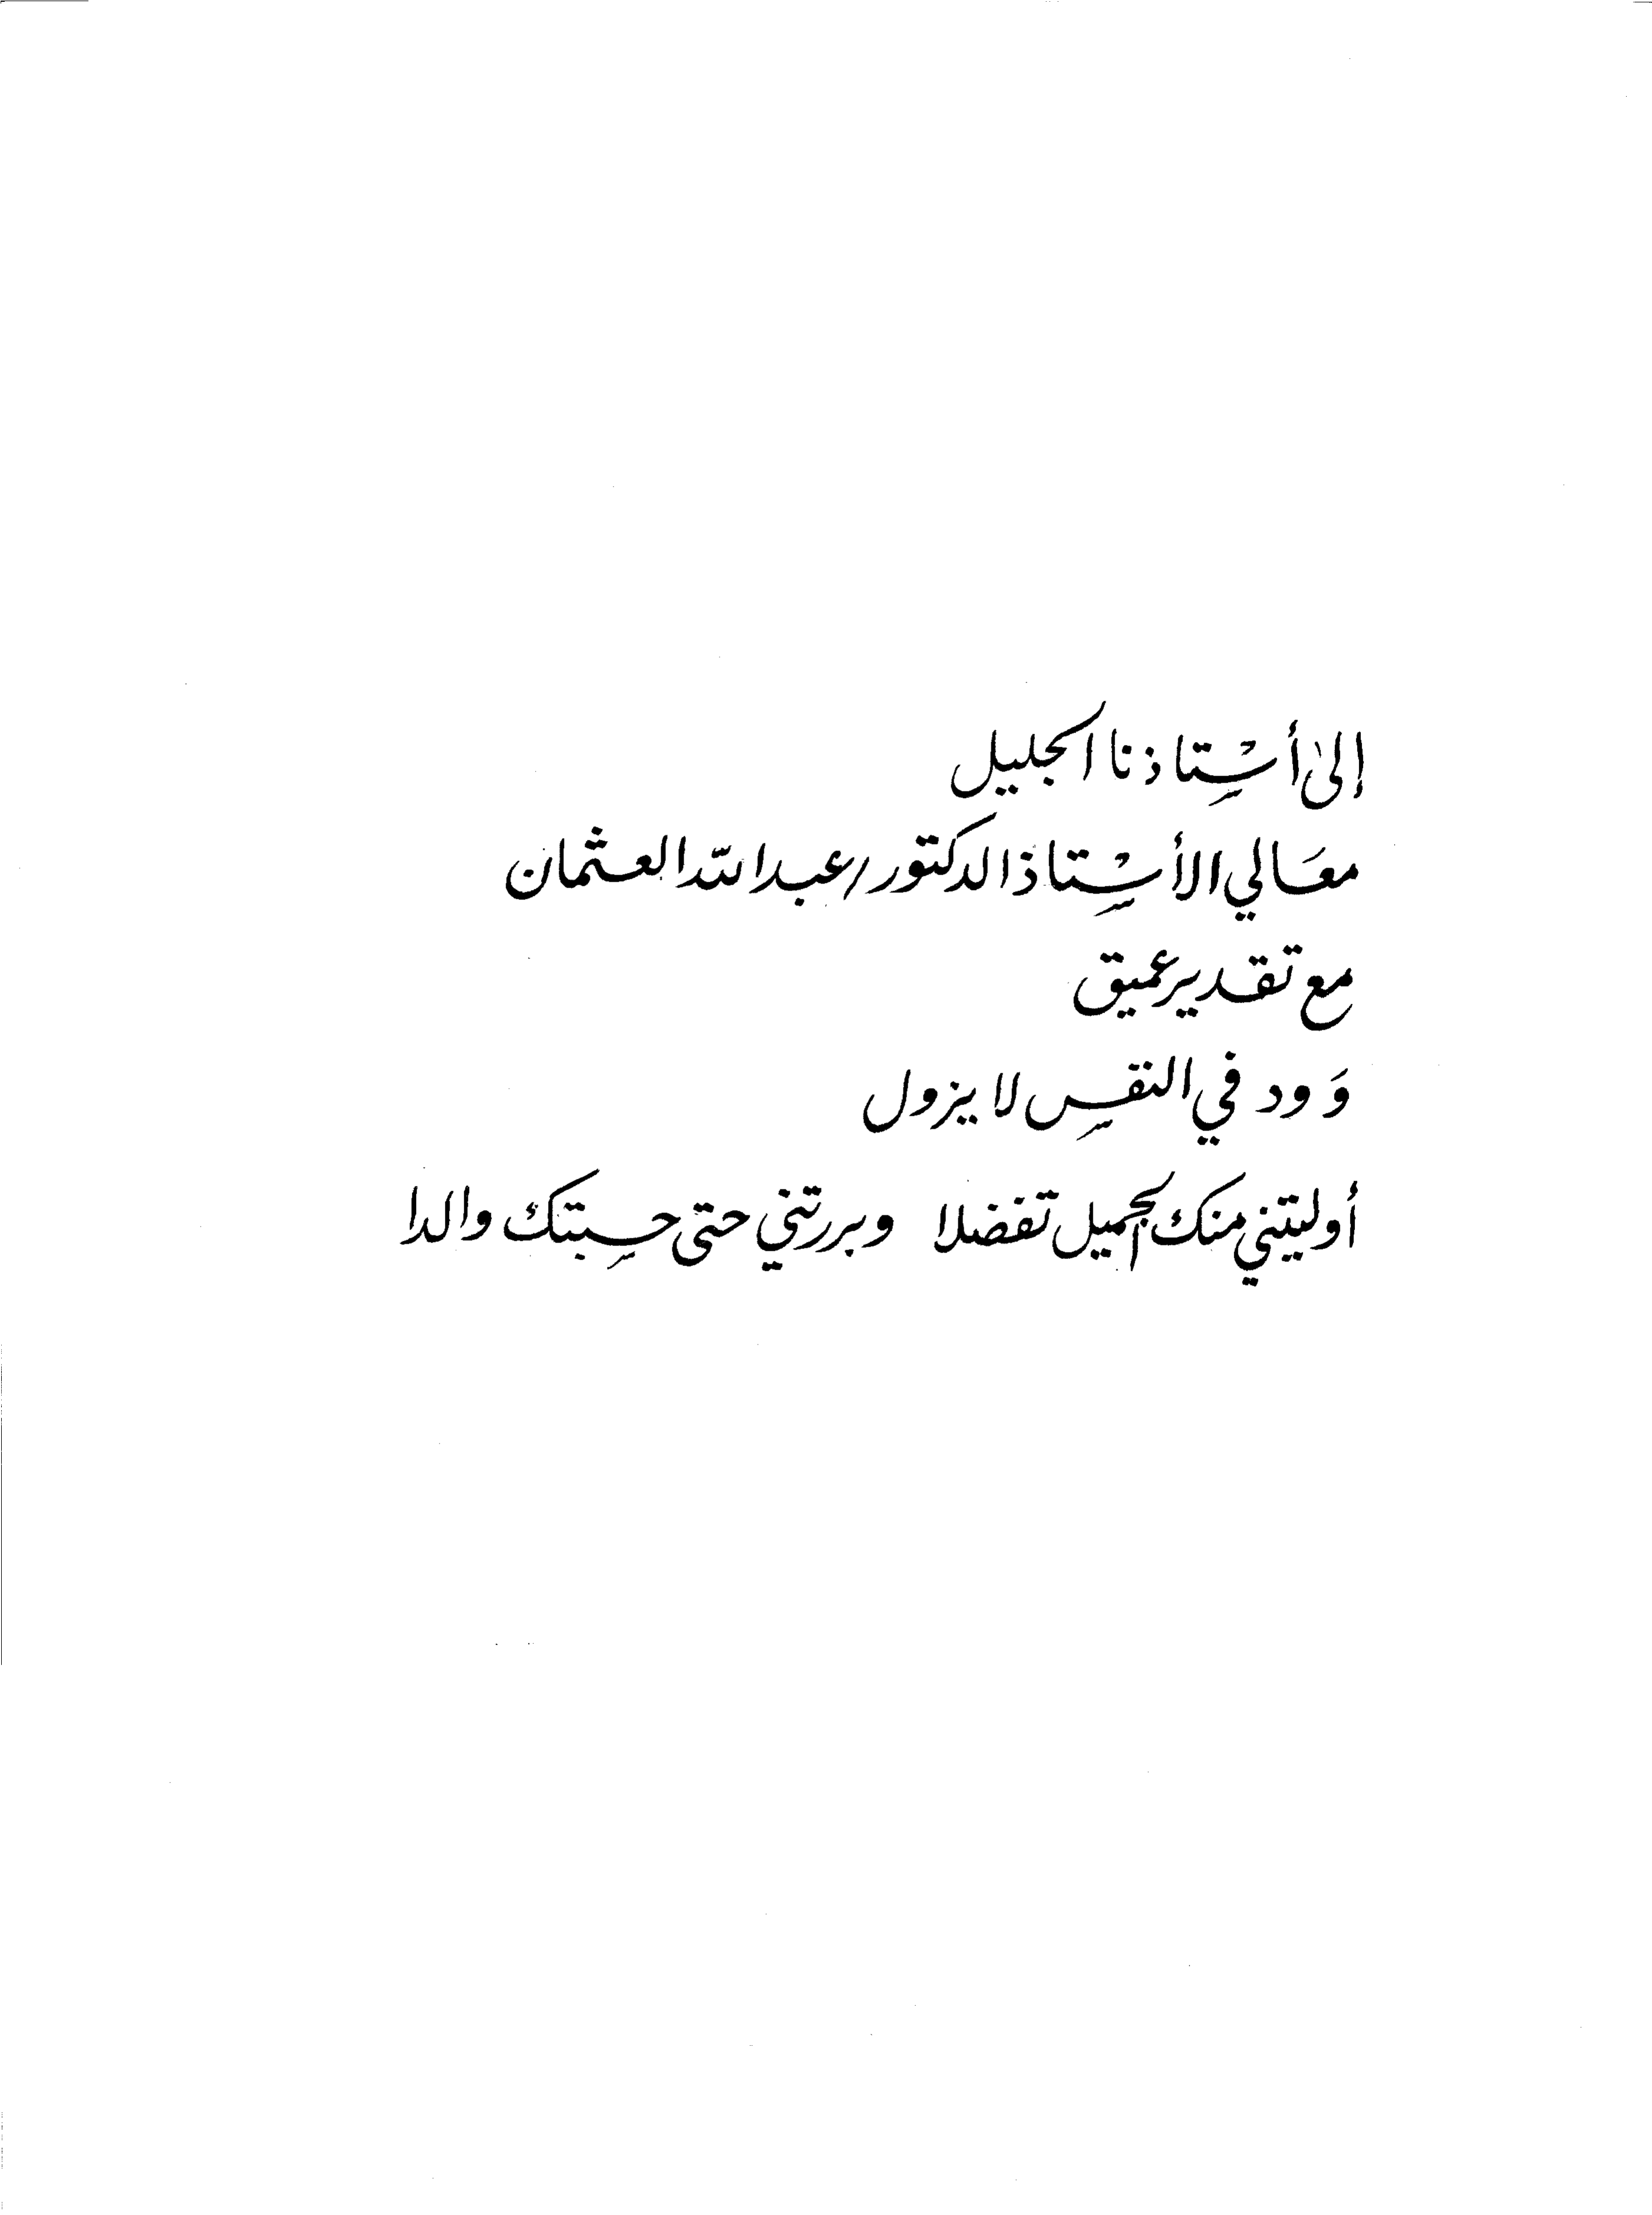 إلى أستاذنا الجليل
معَالي الأستاذ الدكتور / عبد الله العثمان
مع تقدير عميق
وَود في النفس لا يزول
أوليتني منك الجميل تفضلا وبررتني حتى حسبتك والدا